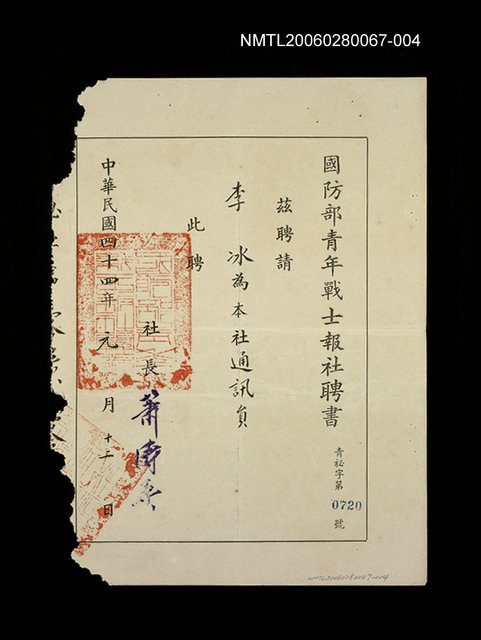 NMTL20060280067-004
國防部青年戰士報社聘書
青祕字第0720號
茲聘請
李冰為本社通訊員
此聘
社長 蕭
中華民國四十四年元月十二日
NMTL20060280067-004